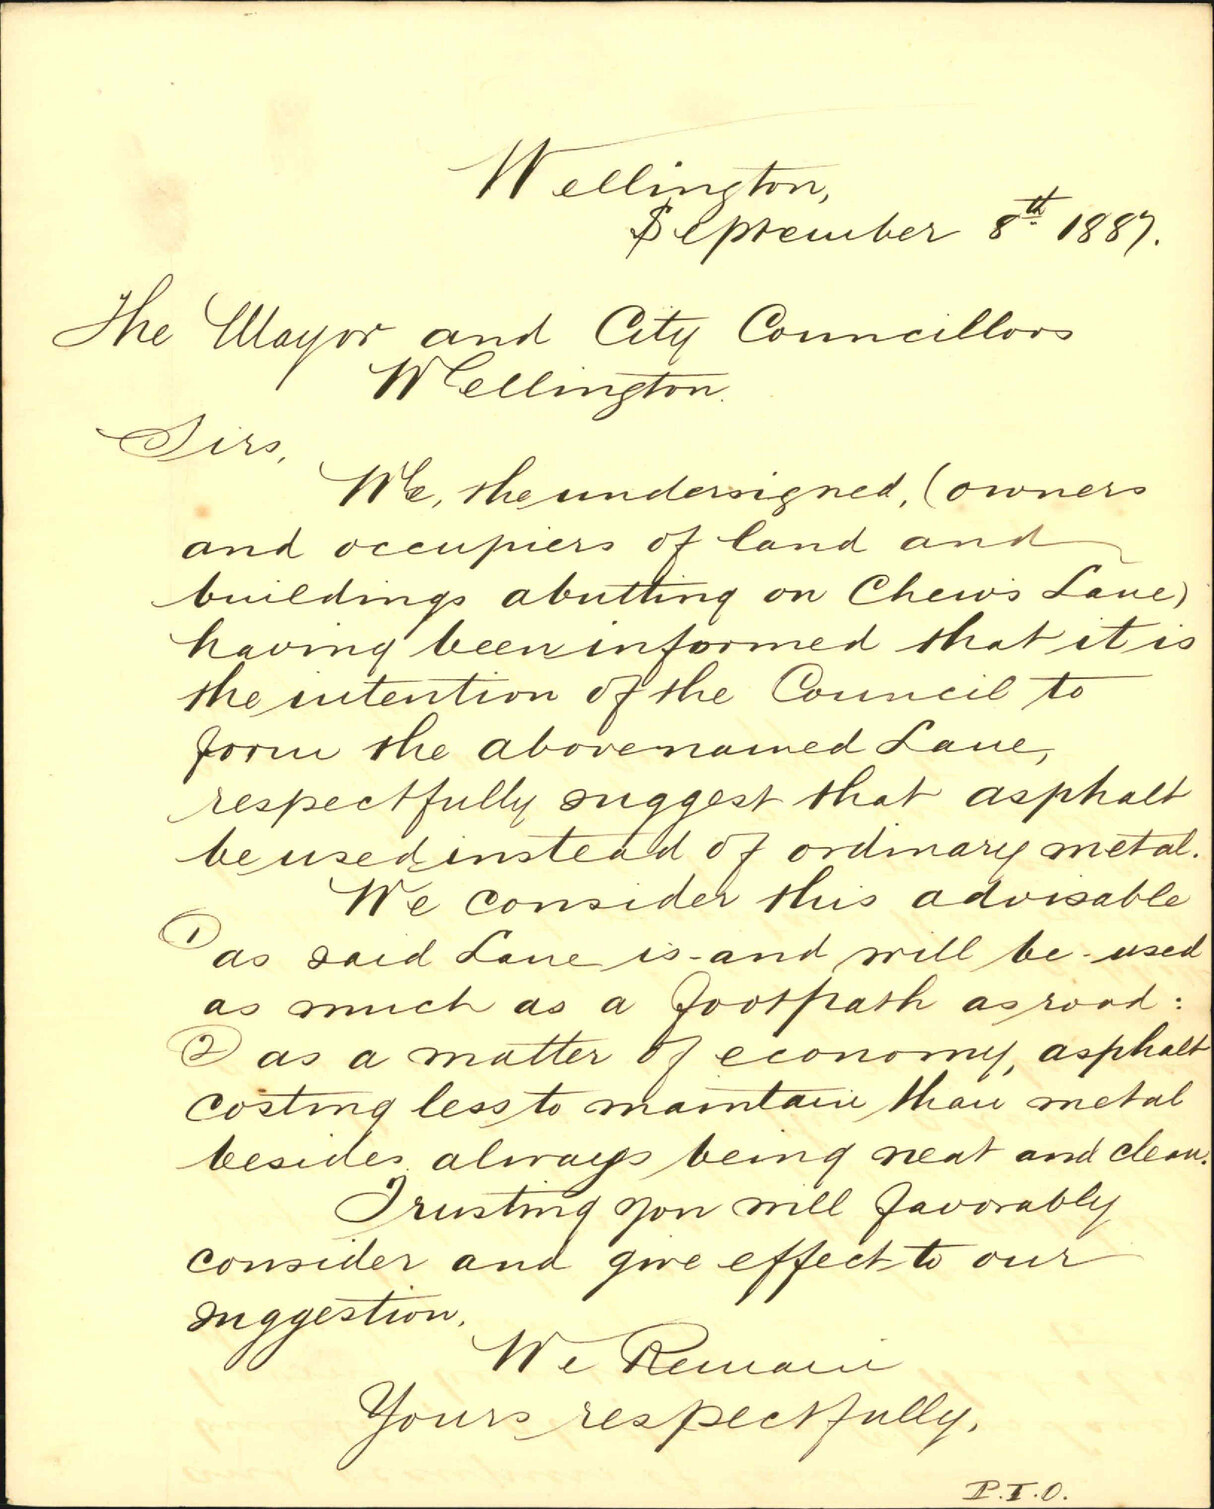 Wellington,
September 8th 1887.
The Mayor and City Councillors
Wellington.
Sirs,
We, the undersigned, (owners
and occupiers of land and
buildings abutting on Chew's Lane)
having been informed that it is
the intention of the Council to
form the abovenamed Lane,
respectfully suggest that asphalt
be used instead of ordinary metal.
We consider this advisable
1) as said Lane is - and will be - used
as much as a footpath as road:
2) as a matter of economy, asphalt
costing less to maintain than metal
besides always being neat and clean.
Trusting you will favorably
consider and give effect to our
suggestion.
We Remain
Yours respectfully,
P.T.O.